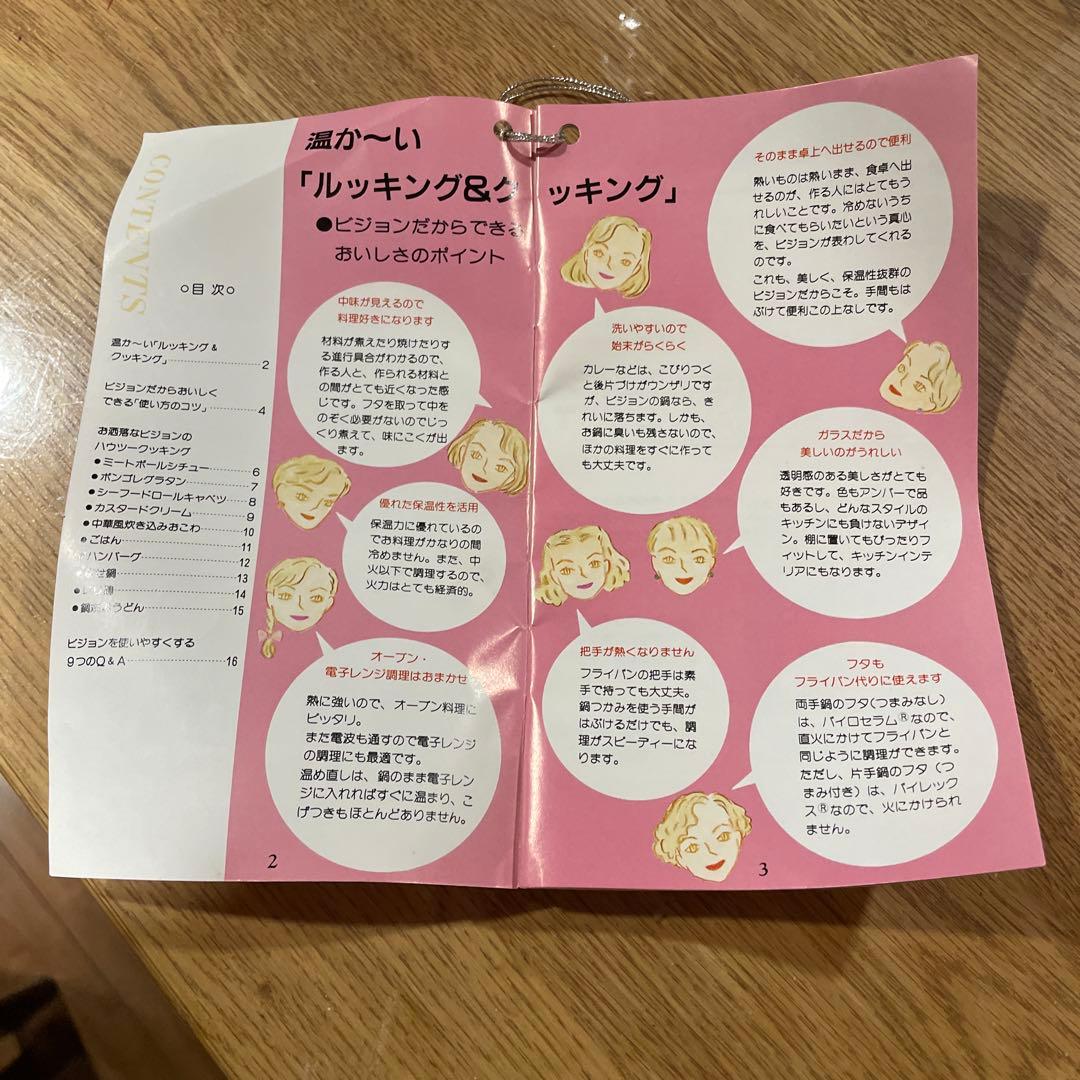 CONTENTS
○目 次○
温か〜い「ルッキング &
クッキング」 2
ビジョンだからおいしく
できる「使い方のコツ」 4
お洒落なビジョンの
ハウツークッキング
●ミートボールシチュー 6
●ボンゴレグラタン 7
●シーフードロールキャベツ 8
●カスタードクリーム 9
●中華風炊き込みおこわ 10
●ごはん 11
ハンバーグ 12
せ鍋 13
14
●鍋 うどん 15
ビジョンを使いやすくする
9つのQ & A 16
温か〜い
「ルッキング&クッキング」
●ビジョンだからできる
おいしさのポイント
中味が見えるので
料理好きになります
材料が煮えたり焼けたりす
る進行具合がわかるので、
作る人と、作られる材料と
の間がとても近くなった感
じです。フタを取って中を
のぞく必要がないのでじっ
くり煮えて、味にこくが出
ます。
優れた保温性を活用
保温力に優れているの
でお料理がかなりの間
冷めません。また、中
火以下で調理するので、
火力はとても経済的。
オーブン・
電子レンジ調理はおまかせ
熱に強いので、オーブン料理に
ピッタリ。
また電波も通すので電子レンジ
の調理にも最適です。
温め直しは、鍋のまま電子レン
ジに入れればすぐに温まり、こ
げつきもほとんどありません。
2
そのまま卓上へ出せるので便利
熱いものは熱いまま、食卓へ出
せるのが、作る人にはとてもう
れしいことです。冷めないうち
に食べてもらいたいという真心
を、ビジョンが表わしてくれる
のです。
これも、美しく、保温性抜群の
ビジョンだからこそ。手間もは
ぶけて便利この上なしです。
洗いやすいので
始末がらくらく
カレーなどは、こびりつく
と後片づけがウンザリです
が、ビジョンの鍋なら、き
れいに落ちます。しかも、
お鍋に臭いも残さないので、
ほかの料理をすぐに作って
も大丈夫です。
ガラスだから
美しいのがうれしい
透明感のある美しさがとても
好きです。色もアンバーで品
もあるし、どんなスタイルの
キッチンにも負けないデザイ
ン。棚に置いてもぴったりフ
ィットして、キッチンインテ
リアにもなります。
把手が熱くなりません
フライパンの把手は素
手で持っても大丈夫。
鍋つかみを使う手間が
はぶけるだけでも、調
理がスピーディーにな
ります。
フタも
フライパン代りに使えます
両手鍋のフタ(つまみなし)
は、パイロセラム®なので、
直火にかけてフライパンと
同じように調理ができます。
ただし、片手鍋のフタ(つ
まみ付き)は、パイレック
ス®なので、火にかけられ
ません。
3